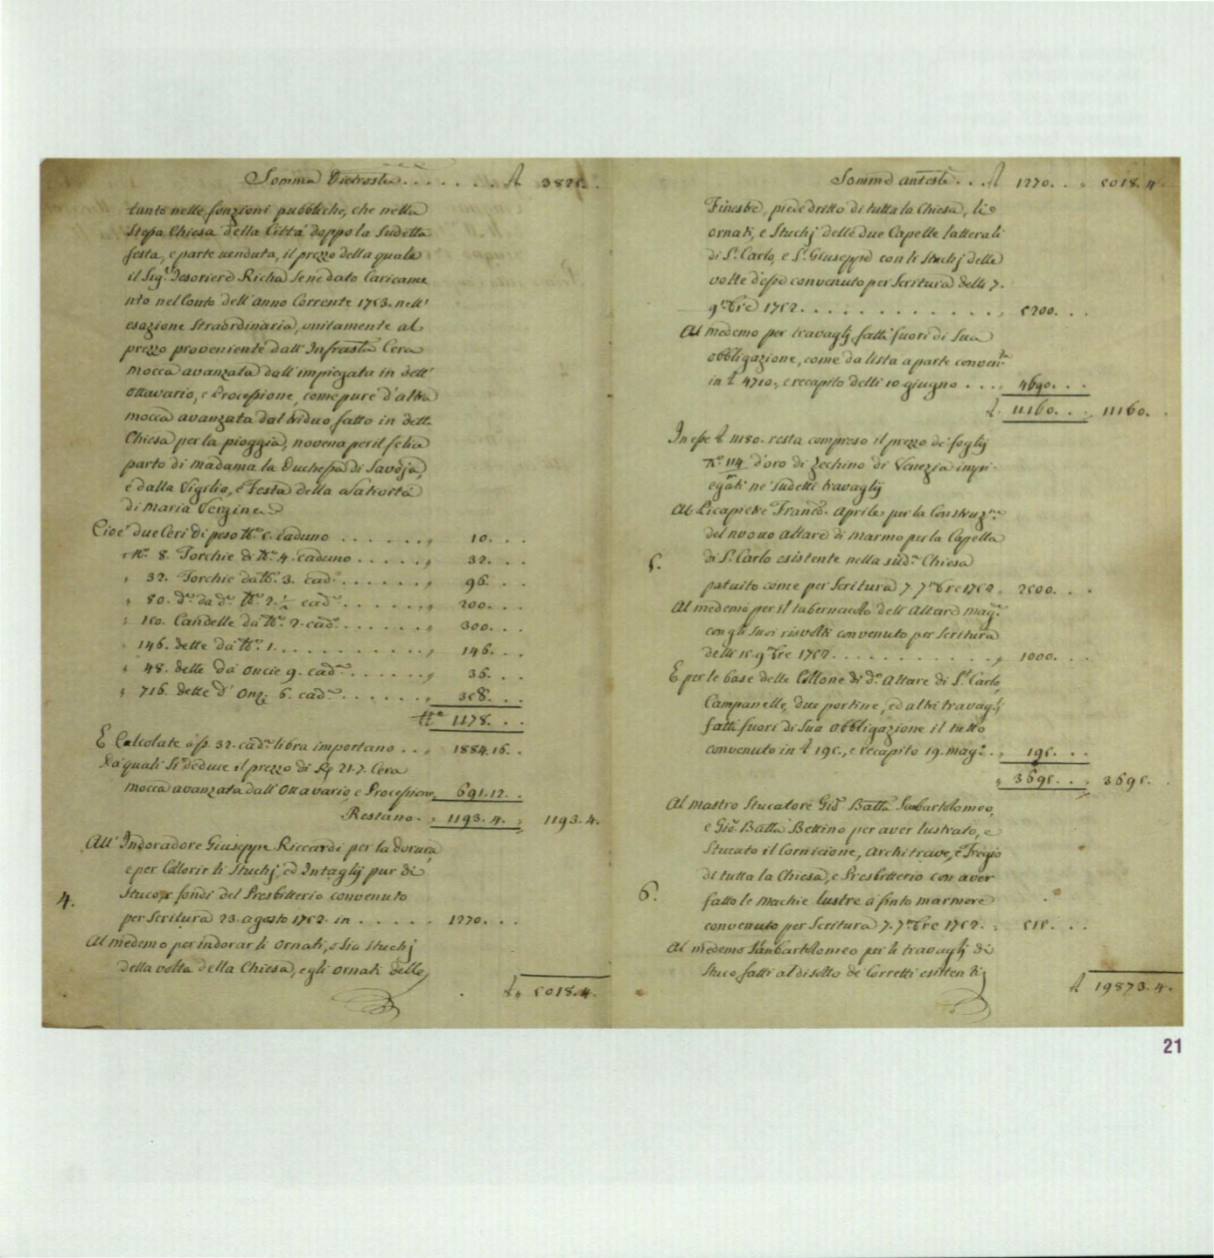 Somma Dietroscta . . . . . . . . £ 3825.
tanto nelle fonzioni pubbliche, che nella
stessa Chiesa della Città doppo la sudetta
festa, e parte venduta, il prezzo della quale
il Sig.r Tesoriere Richa se ne dato Caricame
nto nel Conto dell'anno Corrente 1753. nell'
esazione straordinaria, unitamente al
prezzo proveniente dall'Infrasta Cera
mocca avanzata dall'impiegata in dett'
ottavario, e Processione, come pure d'altra
mocca avanzata dal triduo fatto in detta
Chiesa per la pioggia, novena per il felice
parto di madama la Duchessa di Savoja,
e dalla Vigilio, e Festa della Natività
di Maria Vergine
Cioè due Ceri di peso 5. caduno . . . . . . 10. . .
8. Torchie di 4. caduno . . . . . 32. . .
32. Torchie da 3. cad. . . . . . . 96. . .
80. d.e da d.e 2. 1/2 cad. . . . . . 200. . .
150. Candelle da 2. cad. . . . . . 300. . .
146. dette da 1. . . . . . . . . . . 146. . .
48. dette da oncie 9. cad. . . . . . . 36. . .
716. dette d' onz. 6. cad. . . . . . . 358. . .
1178. . .
E Calcolate a s. 32. cad. libra importano . . 1884.16. .
Da quali si deduce il prezzo di 21.7. Cera
mocca avanzata dall'Ottavario, e Processione 691.12. .
Restano. 1193.4. 1193.4.
4. All'Indoradore Giuseppe Riccardi per la doratura
e per Collorir li Stuchj, ed Intaglij pur di
stuco, e fondi del Presbitterio convenuto
per Scritura 23. agosto 1752. in . . . . . 1270. . .
Al medemo per indorar li ornati, o sia stuchj
della volta della Chiesa, e gli ornati delle
£ 5018.4.
Somma antescta . . . £ 1270. . . 5018.4
Finestre, piedédritto di tutta la Chiesa, li
ornati, e Stuchj delle due Capelle latterali
di S. Carlo, e S. Giuseppe con li stuchj delle
volte d'esse convenuto per Scritura delli 7.
9bre 1752. . . . . . . . . . . . 5200. . .
Al medemo per travaglij fatti fuori di Sua
obbligazione, come da lista a parte convenuta
in £ 4710., e recapito delli 10 giugno . . . . 4690. . .
£ 11160. . . 11160.
In esse £ 11180. resta compreso il prezzo de' foglij
N. 114 d'oro di Zechino di Venezia impi-
egati ne' sudetti travaglij
5. Al Picapietre Franco Aprile per la Construz.ne
del nuovo altare di marmo per la Capella
di S. Carlo esistente nella sud.a Chiesa
patuito come per Scritura 7. 7bre 1752. 2500. . .
Al medemo per il tabernacolo dell'Altare mag.e
con gli suoi risvolti convenuto per Scritura
delli 15. 9bre 1752. . . . . . . . . . 1000. . .
E per le base delle Collone di d.o Altare di S. Carlo,
Campanelle, due portine, ed altri travaglij
fatti fuori di Sua obbligazione il tutto
convenuto in £ 195., e recapito 19. mag. . . 195. . .
3695. . . 3695.
6. Al mastro Stucatore Gio Batta Sanbartolomeo,
e Gio. Batta Bettino per aver lustrato, e
Stucato il Cornicione, Architrave, e Fregio
di tutta la Chiesa, e Presbitterio con aver
fatto le machie lustre a finto marmore
convenuto per Scritura 7. 7bre 1752. . 515. . .
Al medemo Sanbartolomeo per li travaglij di
stuco fatti al disotto de' Corretti esistenti
£ 19873.4.
21